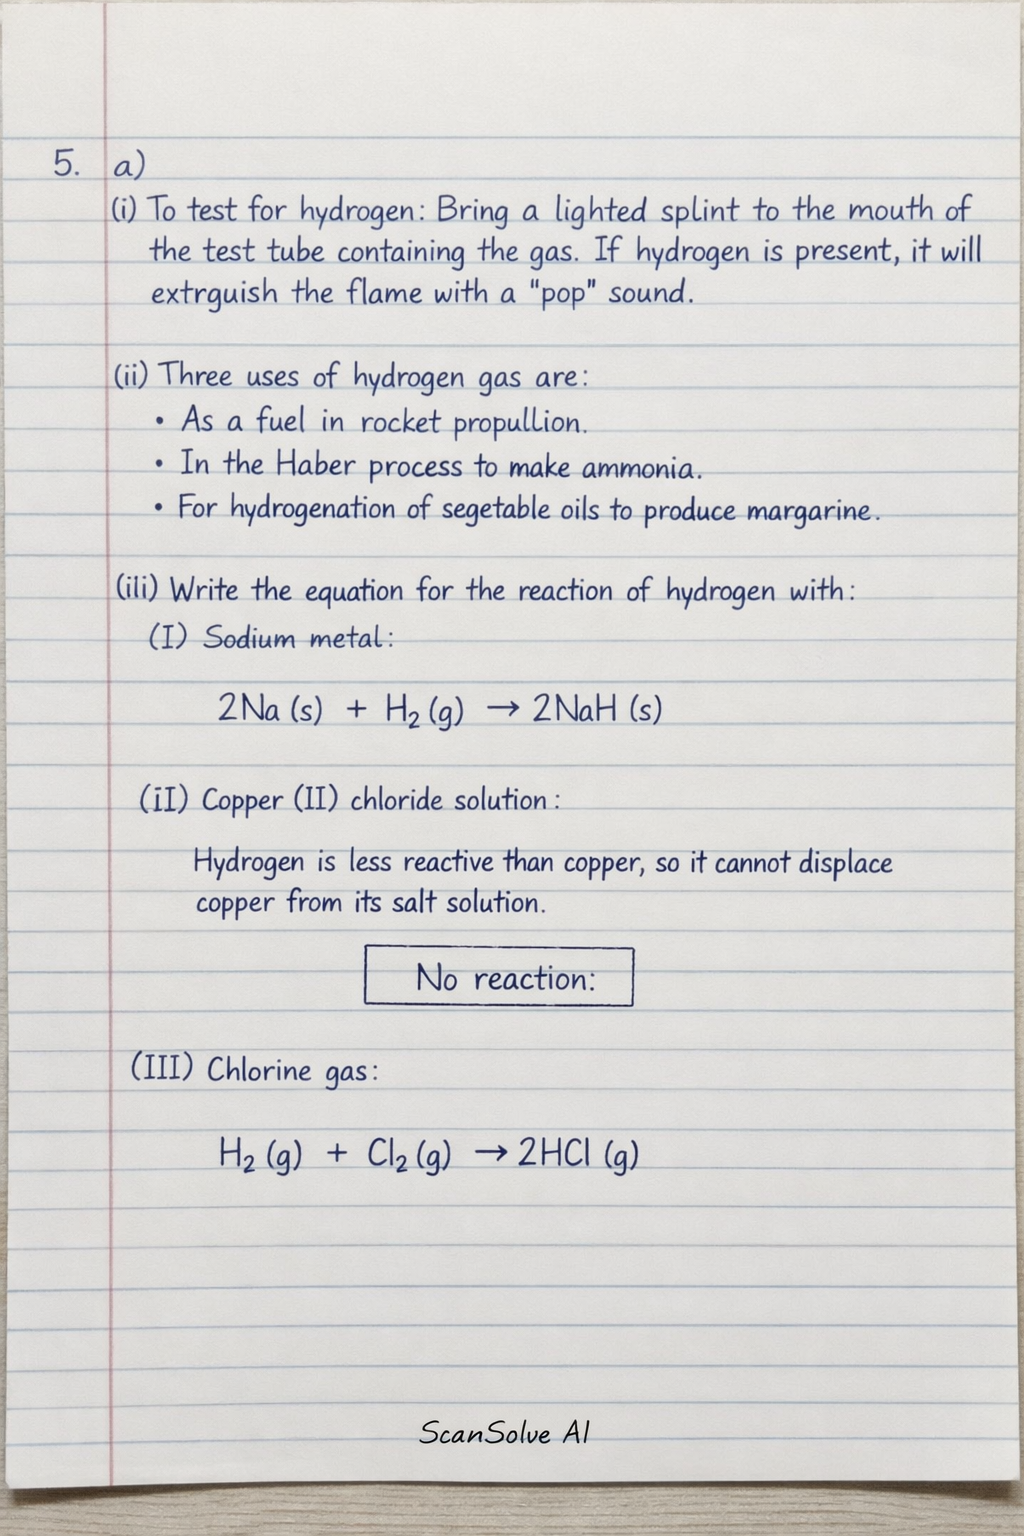 5. a)
(i) To test for hydrogen: Bring a lighted splint to the mouth of
the test tube containing the gas. If hydrogen is present, it will
extrguish the flame with a "pop" sound.
(ii) Three uses of hydrogen gas are:
• As a fuel in rocket propullion.
• In the Haber process to make ammonia.
• For hydrogenation of segetable oils to produce margarine.
(ili) Write the equation for the reaction of hydrogen with:
(I) Sodium metal:
2Na (s) + H₂ (g) → 2NaH (s)
(iI) Copper (II) chloride solution:
Hydrogen is less reactive than copper, so it cannot displace
copper from its salt solution.
No reaction:
(III) Chlorine gas:
H₂ (g) + Cl₂ (g) → 2HCl (g)
ScanSolve AI